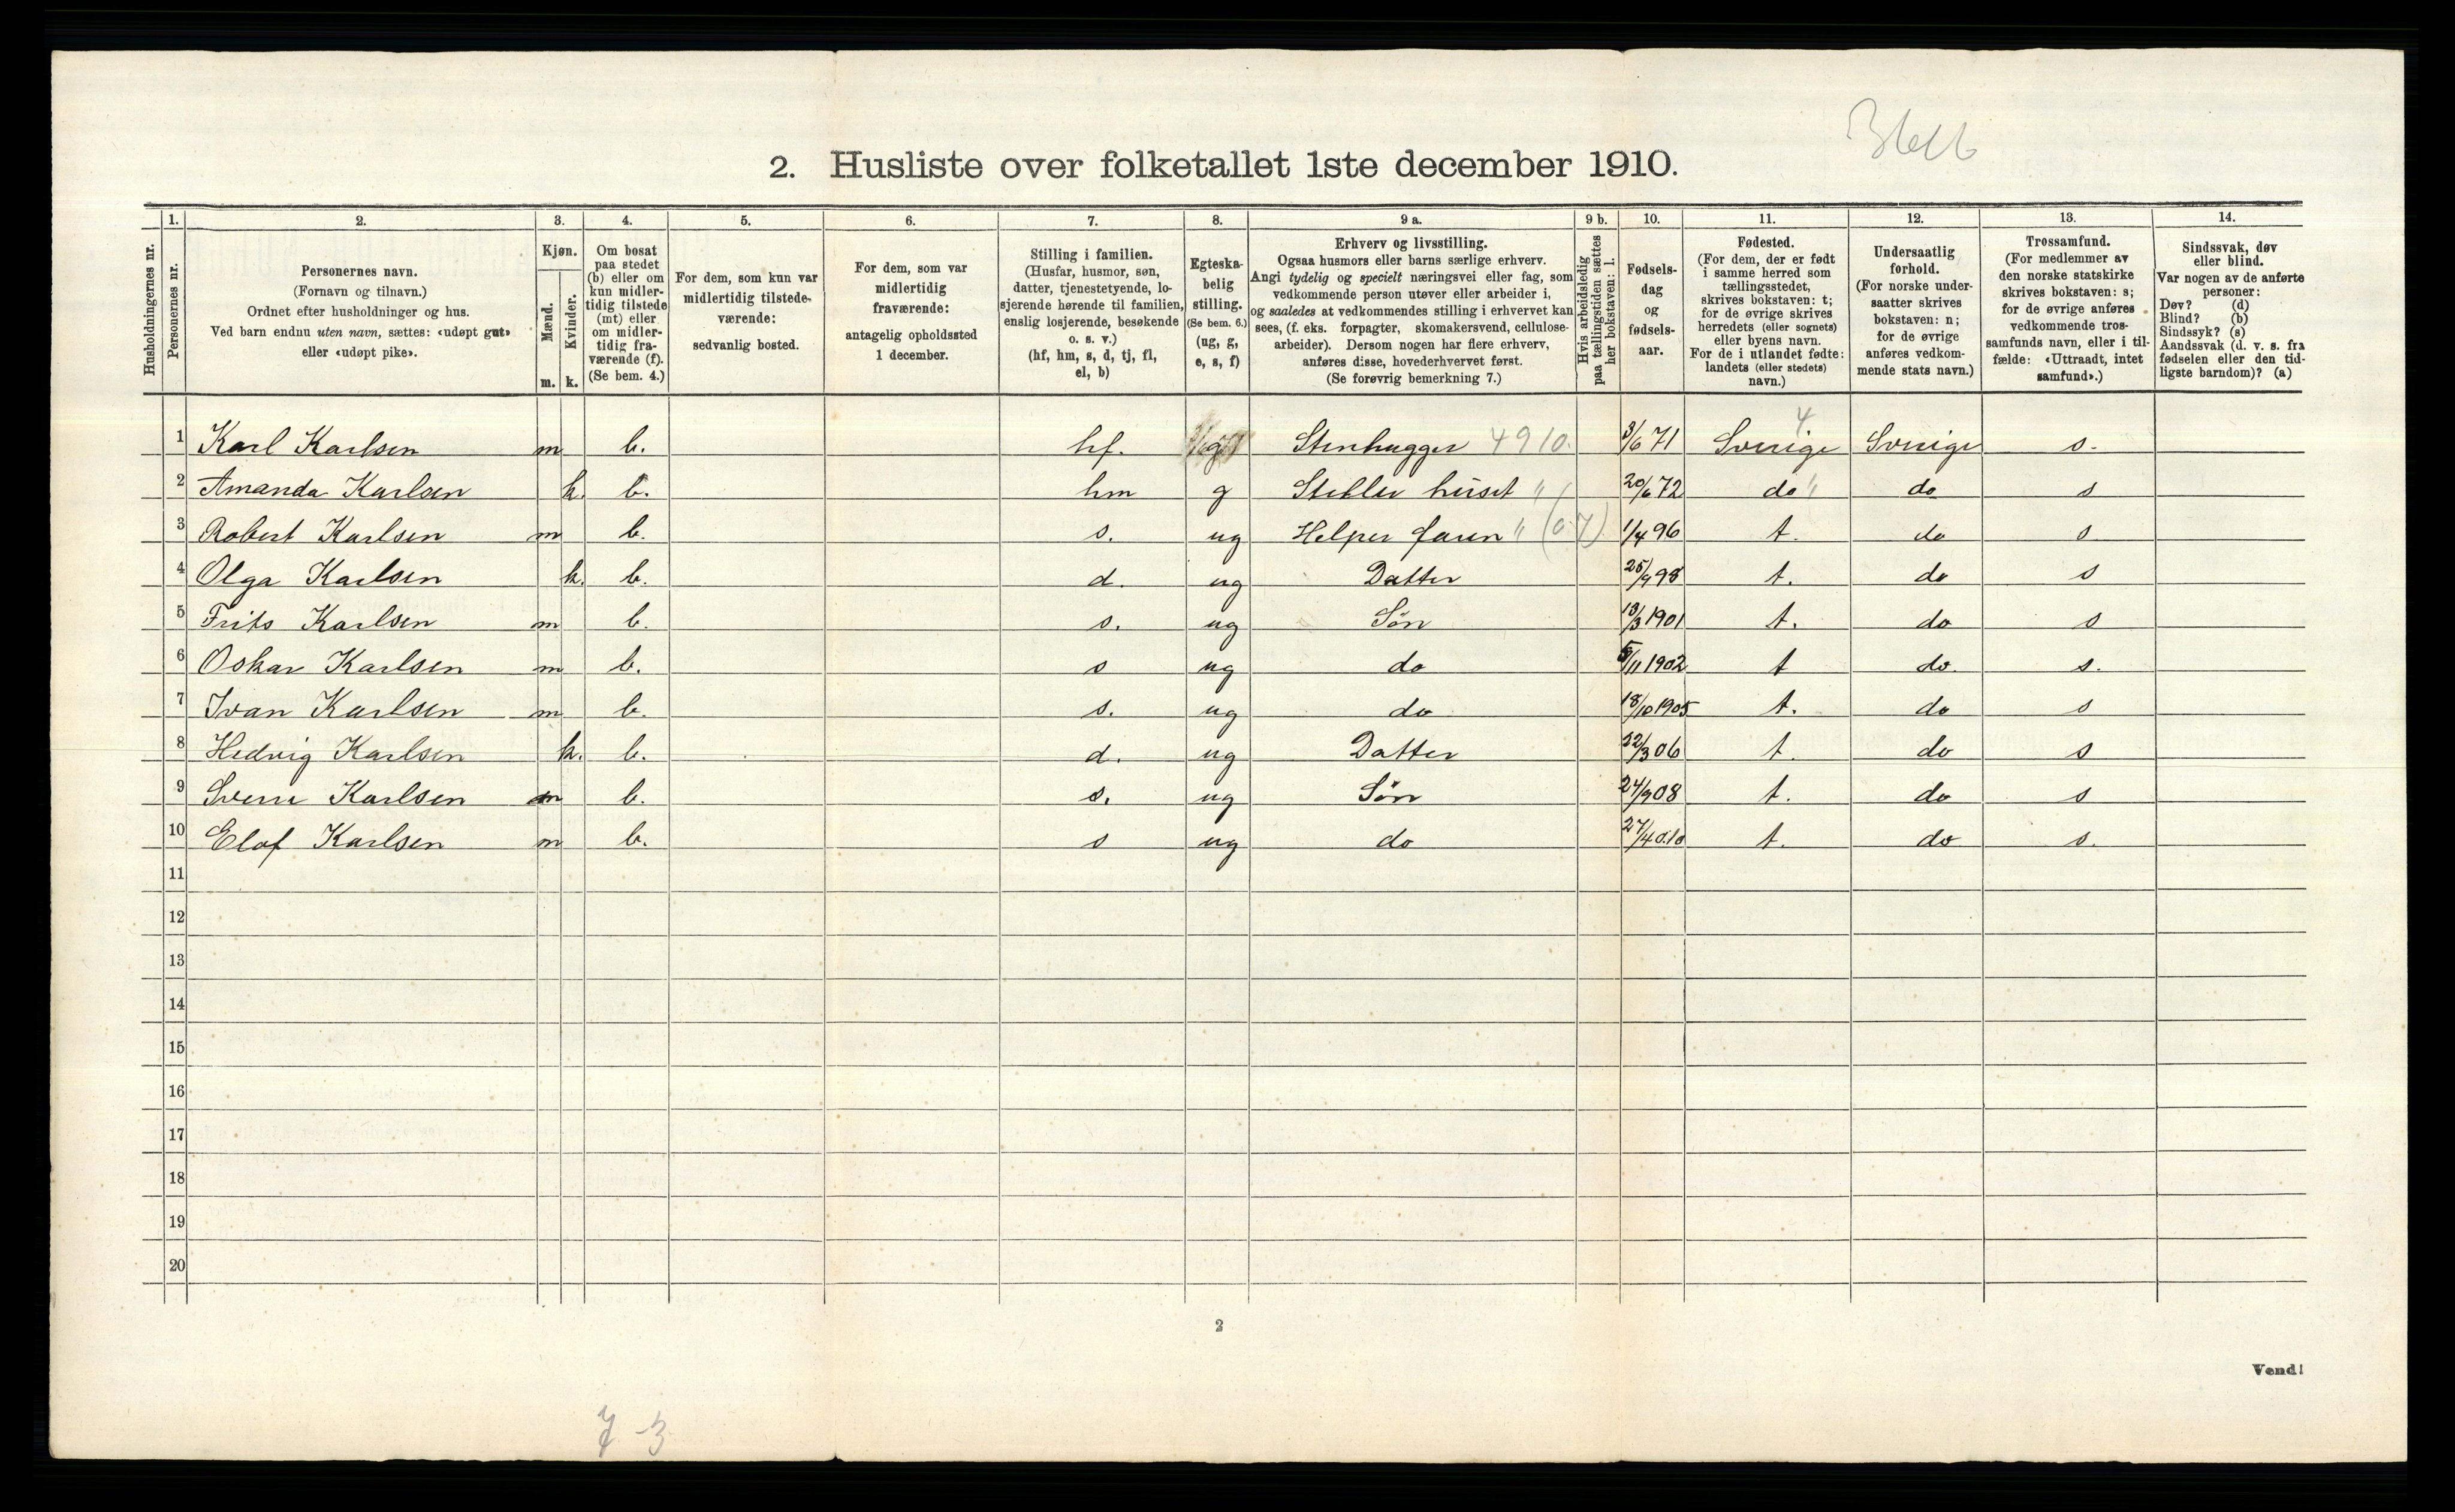 2. Husliste over folketallet 1ste december 1910.
Husholdningernes nr.
1.
Personernes nr.
2.
Personernes navn.
(Fornavn og tilnavn.)
Ordnet efter husholdninger og hus.
Ved barn endnu uten navn, sættes: «udøpt gut»
eller «udøpt pike».
3.
Kjøn.
Mænd.
Kvinder.
m. k.
4.
Om bosat
paa stedet
(b) eller om
kun midler-
tidig tilstede
(mt) eller
om midler-
tidig fra-
værende (f).
(Se bem. 4.)
5.
For dem, som kun var
midlertidig tilstede-
værende:
sedvanlig bosted.
6.
For dem, som var
midlertidig
fraværende:
antagelig opholdssted
1 december.
7.
Stilling i familien.
(Husfar, husmor, søn,
datter, tjenestetyende, lo-
sjerende hørende til familien,
enslig losjerende, besøkende
o. s. v.)
(hf, hm, s, d, tj, fl,
el, b)
8.
Egteska-
belig
stilling.
(Se bem. 6.)
(ug, g,
e, s, f)
9 a.
Erhverv og livsstilling.
Ogsaa husmors eller barns særlige erhverv.
Angi tydelig og specielt næringsvei eller fag, som
vedkommende person utøver eller arbeider i,
og saaledes at vedkommendes stilling i erhvervet kan
sees, (f. eks. forpagter, skomakersvend, cellulose-
arbeider). Dersom nogen har flere erhverv,
anføres disse, hovederhvervet først.
(Se forøvrig bemerkning 7.)
9 b.
Hvis arbeidsledig
paa tællingstiden sættes
her bokstaven: l.
10.
Fødsels-
dag
og
fødsels-
aar.
11.
Fødested.
(For dem, der er født
i samme herred som
tællingsstedet,
skrives bokstaven: t;
for de øvrige skrives
herredets (eller sognets)
eller byens navn.
For de i utlandet fødte:
landets (eller stedets)
navn.)
12.
Undersaatlig
forhold.
(For norske under-
saatter skrives
bokstaven: n;
for de øvrige
anføres vedkom-
mende stats navn.)
13.
Trossamfund.
(For medlemmer av
den norske statskirke
skrives bokstaven: s;
for de øvrige anføres
vedkommende tros-
samfunds navn, eller i til-
fælde: «Uttraadt, intet
samfund».)
14.
Sindssvak, døv
eller blind.
Var nogen av de anførte
personer:
Døv? (d)
Blind? (b)
Sindssyk? (s)
Aandssvak (d. v. s. fra
fødselen eller den tid-
ligste barndom)? (a)
4
1 Karl Karlsen m b. hf. g Stenhugger 4910. 3/6 71 Sverige Sverige s.
2 Amanda Karlsen k. b. hm g Steller huset " 20/6 72 do " do s
3 Robert Karlsen m b. s. ug Helper faren " (07) 1/4 96 t. do s
4 Olga Karlsen k. b. d. ug Datter 25/9 98 t. do s
5 Frits Karlsen m b. s. ug Søn 13/3 1901 t. do s
6 Oskar Karlsen m b. s ug do 5/11 1902 t do. s.
7 Ivan Karlsen m b. s. ug do 18/10 1905 t. do s
8 Hedvig Karlsen k. b. d. ug Datter 22/3 06 t. do s
9 Sverre Karlsen m b. s. ug Søn 24/9 08 t. do s
10 Elof Karlsen m b. s ug do 27/4 010 t. do s.
11
12
13
14
15
16
17
18
19
20
2
Vend!
7-3